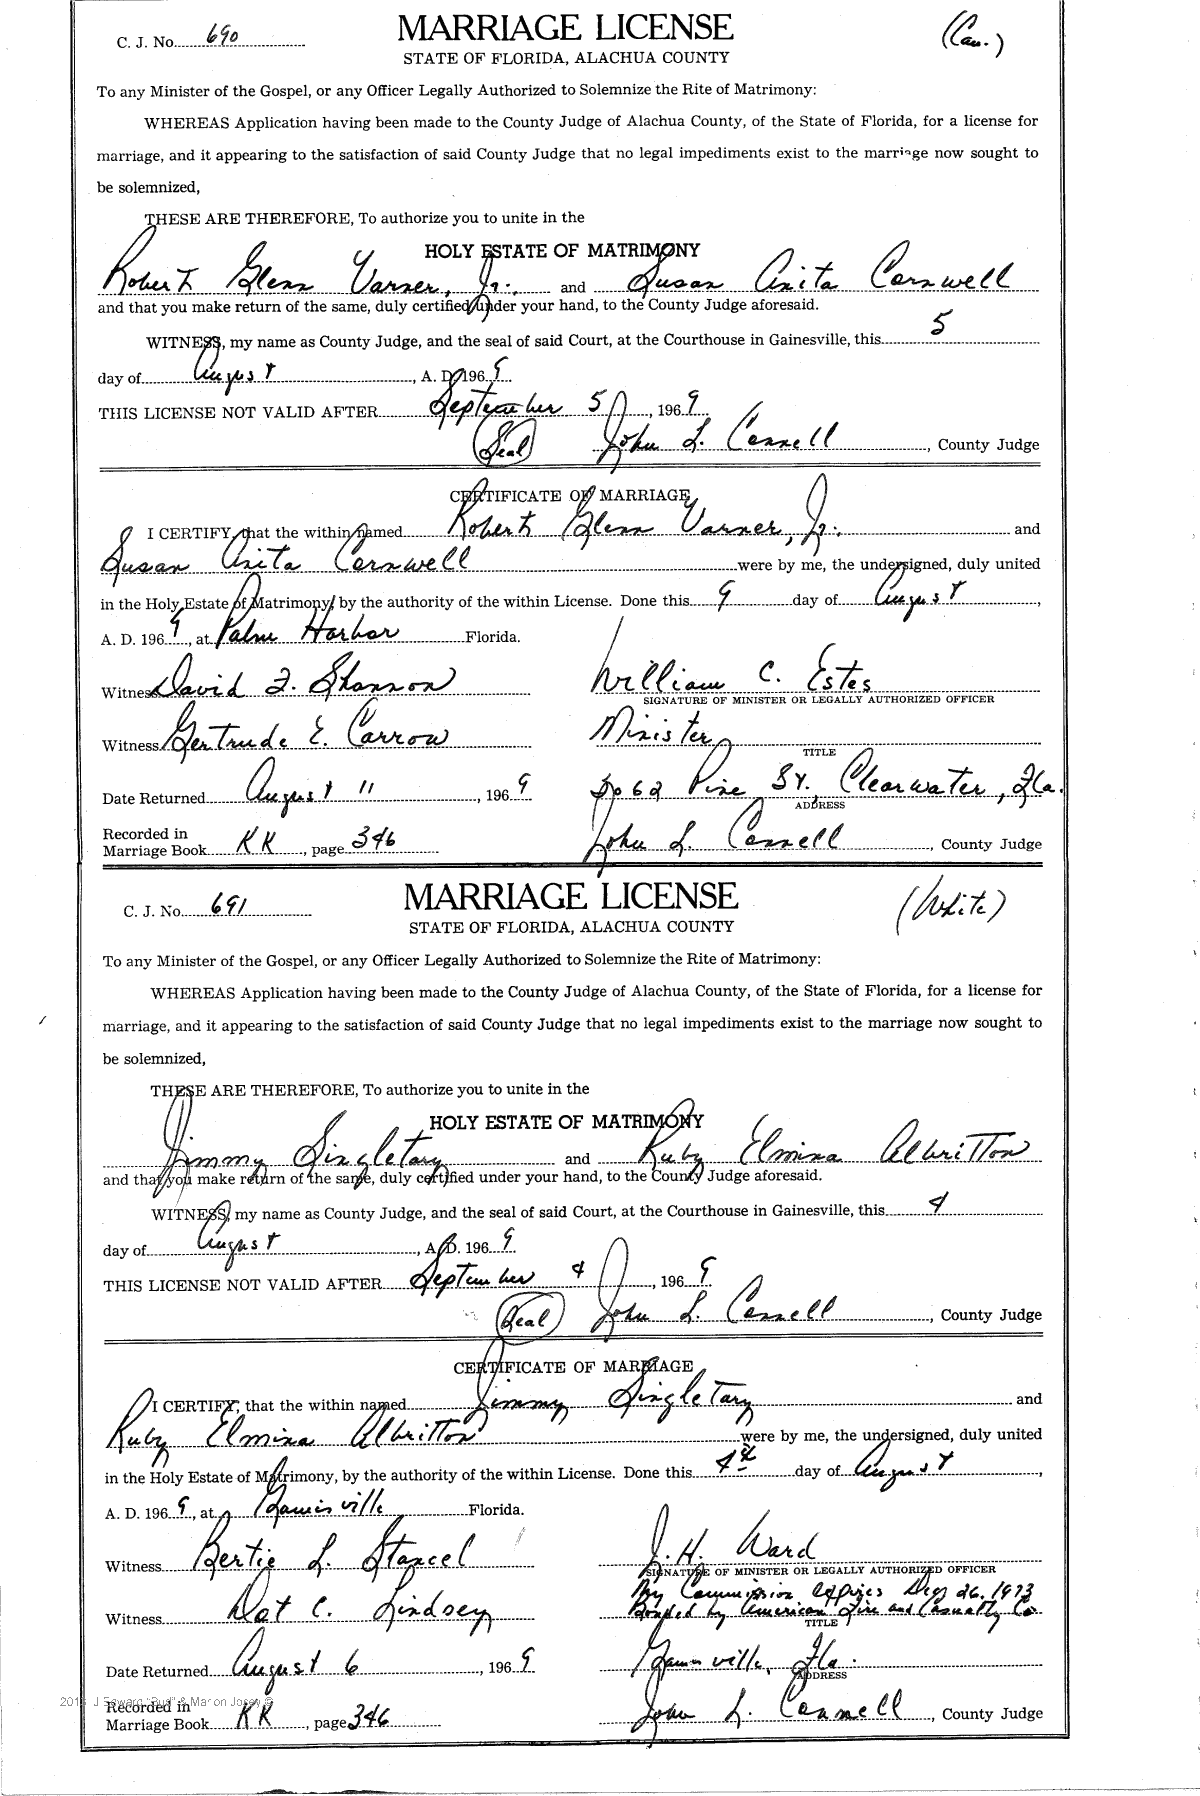 C. J. No. 690 MARRIAGE LICENSE (Cau.)
STATE OF FLORIDA, ALACHUA COUNTY
To any Minister of the Gospel, or any Officer Legally Authorized to Solemnize the Rite of Matrimony:
WHEREAS Application having been made to the County Judge of Alachua County, of the State of Florida, for a license for
marriage, and it appearing to the satisfaction of said County Judge that no legal impediments exist to the marriage now sought to
be solemnized,
THESE ARE THEREFORE, To authorize you to unite in the
HOLY ESTATE OF MATRIMONY
Robert Glenn Varner, Jr. and Susan Anita Cornwell
and that you make return of the same, duly certified under your hand, to the County Judge aforesaid.
WITNESS, my name as County Judge, and the seal of said Court, at the Courthouse in Gainesville, this 5
day of August, A. D. 1969
THIS LICENSE NOT VALID AFTER September 5, 1969
(Seal) John L. Connell, County Judge
CERTIFICATE OF MARRIAGE
I CERTIFY, that the within named Robert Glenn Varner, Jr. and
Susan Anita Cornwell were by me, the undersigned, duly united
in the Holy Estate of Matrimony, by the authority of the within License. Done this 9 day of August,
A. D. 1969, at Palm Harbor Florida.
Witness David F. Shannon William C. Estes
SIGNATURE OF MINISTER OR LEGALLY AUTHORIZED OFFICER
Witness Gertrude E. Carrow Minister
TITLE
Date Returned August 11, 1969 Pine St., Clearwater, Fla.
ADDRESS
Recorded in
Marriage Book KK, page 346 John L. Connell, County Judge
C. J. No. 691 MARRIAGE LICENSE (White)
STATE OF FLORIDA, ALACHUA COUNTY
To any Minister of the Gospel, or any Officer Legally Authorized to Solemnize the Rite of Matrimony:
WHEREAS Application having been made to the County Judge of Alachua County, of the State of Florida, for a license for
marriage, and it appearing to the satisfaction of said County Judge that no legal impediments exist to the marriage now sought to
be solemnized,
THESE ARE THEREFORE, To authorize you to unite in the
HOLY ESTATE OF MATRIMONY
Jimmy Singletary and Ruby Elmina Albritton
and that you make return of the same, duly certified under your hand, to the County Judge aforesaid.
WITNESS, my name as County Judge, and the seal of said Court, at the Courthouse in Gainesville, this 4
day of August, A. D. 1969
THIS LICENSE NOT VALID AFTER September 4, 1969
(Seal) John L. Connell, County Judge
CERTIFICATE OF MARRIAGE
I CERTIFY, that the within named Jimmy Singletary and
Ruby Elmina Albritton were by me, the undersigned, duly united
in the Holy Estate of Matrimony, by the authority of the within License. Done this 4th day of August,
A. D. 1969, at Gainesville Florida.
Witness Bertie L. Stancel J. H. Ward
SIGNATURE OF MINISTER OR LEGALLY AUTHORIZED OFFICER
My Commission expires 26, 1973
Witness Dot C. Lindsey Bonded by American Fire and Casualty Co
TITLE
Date Returned August 6, 1969 Gainesville, Fla.
ADDRESS
Recorded in
Marriage Book KK, page 346 John L. Connell, County Judge